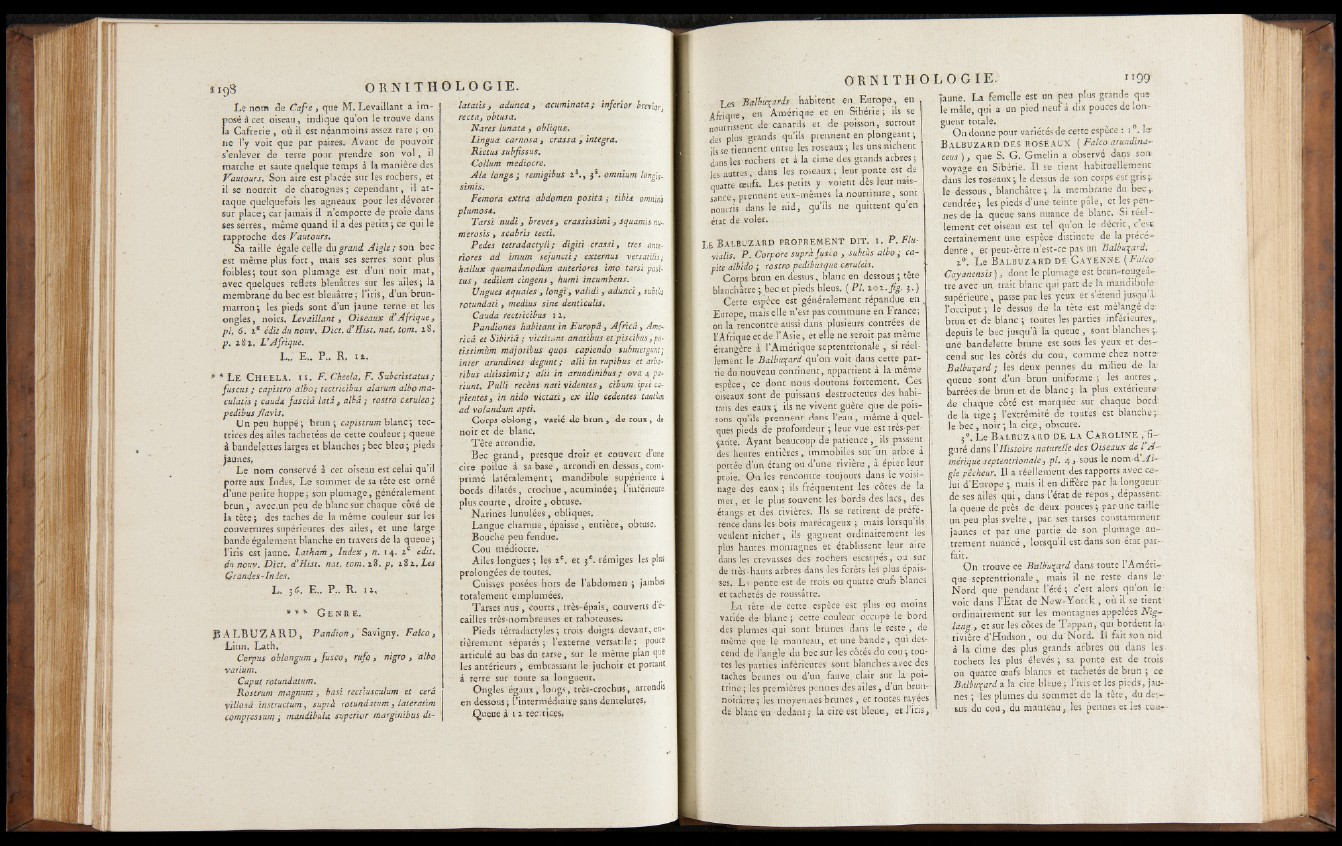 1198
ORNITHOLOGIE.
Le nom de Cafre, que M. Levaillant a im-
posé à cet oiseau, indique qu'on le trouve dans
la Cafrerie, où il est néanmoins assez rare ; on
ne l'y voit que par paires. Avant de pouvoir
s'enlever de terre pour prendre son vol, il
marche et saute quelque temps à la manière des
Vautours. Son aire est placée sur les rochers, et
il se nourrit de charognes ; cependant, il at-
taque quelquefois les agneaux pour les dévorer
sur place ; car jamais il n'emporte de proie dans
ses serres, même quand il a des petits ; ce qui le
rapproche des Vautours.
Sa taille égale celle du grand Aigle ; son bec
est même plus fort, mais ses serres sont plus
foibles ; tout son plumage est d'un noir mat,
avec quelques reflets bleuâtres sur les ailes ; la
membrane du bec est bleuâtre ; l'iris, d'un brun-
marron ; les pieds sont d'un jaune terne et les
ongles, noirs. Levaillant, Oiseaux d'Afrique,
pl. 6. 2e édit du nouv. Dict. d'Hist. nat. tom. 28.
p. 282. L'Afrique.
L.. E.. P.. R. 12.
* * LE CHEELA. 11. F. Cheela, F. Subcristatus ;
fuscus ; capistro albo ; tectricibus alarum albo ma-
culatis ; caudæ fasciâ latâ, albâ ; rostro cæruleo ;
pedibus flavis.
Un peu huppé ; brun ; capistrum blanc ; tec-
trices des ailes tachetées de cette couleur ; queue
à bandelettes larges et blanches ; bec bleu ; pieds
jaunes.
Le nom conservé à cet oiseau est celui qu'il
porte aux Indes. Le sommet de sa tête est orné
d'une petite huppe ; son plumage, généralement
brun, avec un peu de blanc sur chaque côté de
la tête ; des taches de la même couleur sur les
couvertures supérieures des ailes, et une large
bande également blanche en travers de la queue ;
l'iris est jaune. Latham, Index, n. 14. 2e édit.
du nouv. Dict. d'Hist. nat. tom. 28. p. 282, Les
Grandes-Indes.
L. 36. E.. P.. R. 12.
* * * GENRE.
BALBUZARD, Pandion, Savigny. Falco,
Linn. Lath.
Corpus oblongum, fusco, rufo, nigro, albo
varium.
Caput rotundatum.
Rostrum magnum, basi rectiusculum et cerâ
villosâ instructum, suprà rotundatum, lateratim
compressum ; mandibula superior marginibus di-
latatis, adunca, acuminata ; inferior brevior,
recta, obtusa.
Nares lunatæ, oblique.
Lingua carnosa, crassa, integra.
Rictus subfissus.
Collum mediocre.
Alæ longæ ; remigibus 2ª., 3ª. omnium longis-
simis.
Femora extra abdomen posita ; tibiæ omninò
plumosæ.
Tarsi nudi, breves, crassissimi, squamis nu-
merosis, scabris tecti.
Pedes tetradactyli ; digiti crassi, tres ante-
riores ad imum sejuncti ; externus versatilis ;
hallux quemadmodùm anteriores imo tarsi posi-
tus, sedilem cingens, humi incumbens.
Ungues æquales, longi, validi, adunci, subtùs
rotundati, medius sine denticulis.
Cauda rectricibus 12.
Pandiones habitant in Europâ, Africâ, Ame-
ricâ et Sibiriâ ; victitant anatibus et piscibus, po-
tissimùm majoribus quos capiendo submergunt ;
inter arundines degunt ; alii in rupibus et arbo-
ribus altissimis ; alii in arundinibus ; ova 4 pa-
riunt. Pulli recèns nati videntes, cibum ipsi ca-
pientes, in nido victati, ex illo cedentes tantùm
ad volandum apti.
Corps oblong, varié de brun, de roux, de
noir et de blanc.
Tête arrondie.
Bec grand, presque droit et couvert d'une
cire poilue à sa base, arrondi en dessus, com-
primé latéralement ; mandibule supérieure à
bords dilatés, crochue, acuminée ; l'inférieure
plus courte, droite, obtuse.
Narines lunulées, obliques.
Langue charnue, épaisse, entière, obtuse.
Bouche peu fendue.
Cou médiocre.
Ailes longues ; les 2e. et 3e. rémiges les plus
prolongées de toutes.
Cuisses posées hors de l'abdomen ; jambes
totalement emplumées.
Tarses nus, courts, très-épais, couverts d'é-
cailles très-nombreuses et raboteuses.
Pieds tétradactyles ; trois doigts devant, en-
tièrement séparés ; l'externe versatile ; pouce
articulé au bas du tarse, sur le même plan que
les antérieurs, embrassant le juchoir et portant
à terre sur toute sa longueur.
Ongles égaux, longs, très-crochus, arrondis
en dessous ; l'intermédiaire sans dentelures.
Queue à 12 rectrices.
ORNITHOLOGIE.
1199
Les Balbuzards habitent en Europe, en
Afrique, en Amérique et en Sibérie ; ils se
nourrissent de canards et de poisson, surtout
des plus grands qu'ils prennent en plongeant ;
ils se tiennent entre les roseaux ; les uns nichent
dans les rochers et à la cime des grands arbres ;
les autres, dans les roseaux ; leur ponte est de
quatre œufs. Les petits y voient dès leur nais-
sance, prennent eux-mêmes la nourriture, sont
nourris dans le nid, qu'ils ne quittent qu'en
état de voler.
LE BALBUZARD PROPREMENT DIT. 1. P. Flu-
vialis. P. Corpore suprà fusco, subtùs albo ; ca-
pite albido ; rostro pedibusque cæruleis.
Corps brun en dessus, blanc en dessous ; tête
blanchâtre ; bec et pieds bleus. (Pl. 202. fig. 3.)
Cette espèce est généralement répandue en
Europe, mais elle n'est pas commune en France ;
on la rencontre aussi dans plusieurs contrées de
l'Afrique et de l'Asie, et elle ne seroit pas même
étrangère à l'Amérique septentrionale, si réel-
lement le Balbuzard qu'on voit dans cette par-
tie du nouveau continent, appartient à la même
espèce, ce dont nous doutons fortement. Ces
oiseaux sont de puissans destructeurs des habi-
tans des eaux ; ils ne vivent guère que de pois-
sons qu'ils prennent dans l'eau, même à quel-
ques pieds de profondeur ; leur vue est très-per-
çante. Ayant beaucoup de patience, ils passent
des heures entières, immobiles sur un arbre à
portée d'un étang ou d'une rivière, à épier leur
proie. On les rencontre toujours dans le voisi-
nage des eaux ; ils fréquentent les côtes de la
mer, et le plus souvent les bords des lacs, des
étangs et des rivières. Ils se retirent de préfé-
rence dans les bois marécageux ; mais lorsqu'ils
veulent nicher, ils gagnent ordinairement les
plus hautes montagnes et établissent leur aire
dans les crevasses des rochers escarpés, ou sur
de très-hauts arbres dans les forêts les plus épais-
ses. La ponte est de trois ou quatre œufs blancs
et tachetés de roussâtre.
La tête de cette espèce est plus ou moins
variée de blanc ; cette couleur occupe le bord
des plumes qui sont brunes dans le reste, de
même que le manteau, et une bande, qui des-
cend de l'angle du bec sur les côtés du cou ; tou-
tes les parties inférieures sont blanches avec des
taches brunes ou d'un fauve clair sur la poi-
trine ; les premières pennes des ailes, d'un brun-
noirâtre ; les moyennes brunes, et toutes rayées
de blanc en dedans ; la cire est bleue, et l'iris,
jaune. La femelle est un peu plus grande que
le mâle, qui a un pied neuf à dix pouces de lon-
gueur totale.
On donne pour variétés de cette espèce : 1°. le
BALBUZARD DES ROSEAUX (Falco arundina-
ceus), que S. G. Gmelin a observé dans son
voyage en Sibérie. Il se tient habituellement
dans les roseaux ; le dessus de son corps est gris ;
le dessous, blanchâtre ; la membrane du bec,
cendrée ; les pieds d'une teinte pâle, et les pen-
nes de la queue sans nuance de blanc. Si réel-
lement cet oiseau est tel qu'on le décrit, c'est
certainement une espèce distincte de la précé-
dente, et peut-être n'est-ce pas un Balbuzard.
2°. Le BALBUZARD DE CAYENNE (Falco
Cayanensis), dont le plumage est brun-rougeâ-
tre avec un trait blanc qui part de la mandibule
supérieure, passe par les yeux et s'étend jusqu'à
l'occiput ; le dessus de la tête est mélangé de
brun et de blanc ; toutes les parties inférieures,
depuis le bec jusqu'à la queue, sont blanches ;
une bandelette brune est sous les yeux et des-
cend sur les côtés du cou, comme chez notre
Balbuzard ; les deux pennes du milieu de la
queue sont d'un brun uniforme ; les autres,
barrées de brun et de blanc ; la plus extérieure
de chaque côté est marquée sur chaque bord
de la tige ; l'extrémité de toutes est blanche ;
le bec, noir ; la cire, obscure.
3°. Le BALBUZARD DE LA CAROLINE, fi-
guré dans l'Histoire naturelle des Oiseaux de l'A-
mérique septentrionale, pl. 4, sous le nom d'Ai-
gle pêcheur. Il a réellement des rapports avec ce-
lui d'Europe ; mais il en diffère par la longueur
de ses ailes qui, dans l'état de repos, dépassent
la queue de près de deux pouces ; par une taille
un peu plus svelte, par ses tarses constamment
jaunes et par une partie de son plumage au-
trement nuancé, lorsqu'il est dans son état par-
fait.
On trouve ce Balbuzard dans toute l'Améri-
que septentrionale, mais il ne reste dans le
Nord que pendant l'été ; c'est alors qu'on le
voit dans l'Etat de New-Yorck, où il se tient
ordinairement sur les montagnes appelées Nig-
lang, et sur les côtes de Tappan, qui bordent la
rivière d'Hudson, ou du Nord. Il fait son nid
à la cime des plus grands arbres ou dans les
rochers les plus élevés ; sa ponte est de trois
ou quatre œufs blancs et tachetés de brun ; ce
Balbuzard a la cire bleue ; l'iris et les pieds, jau-
nes ; les plumes du sommet de la tête, du des-
sus du cou, du manteau, les pennes et les cou-